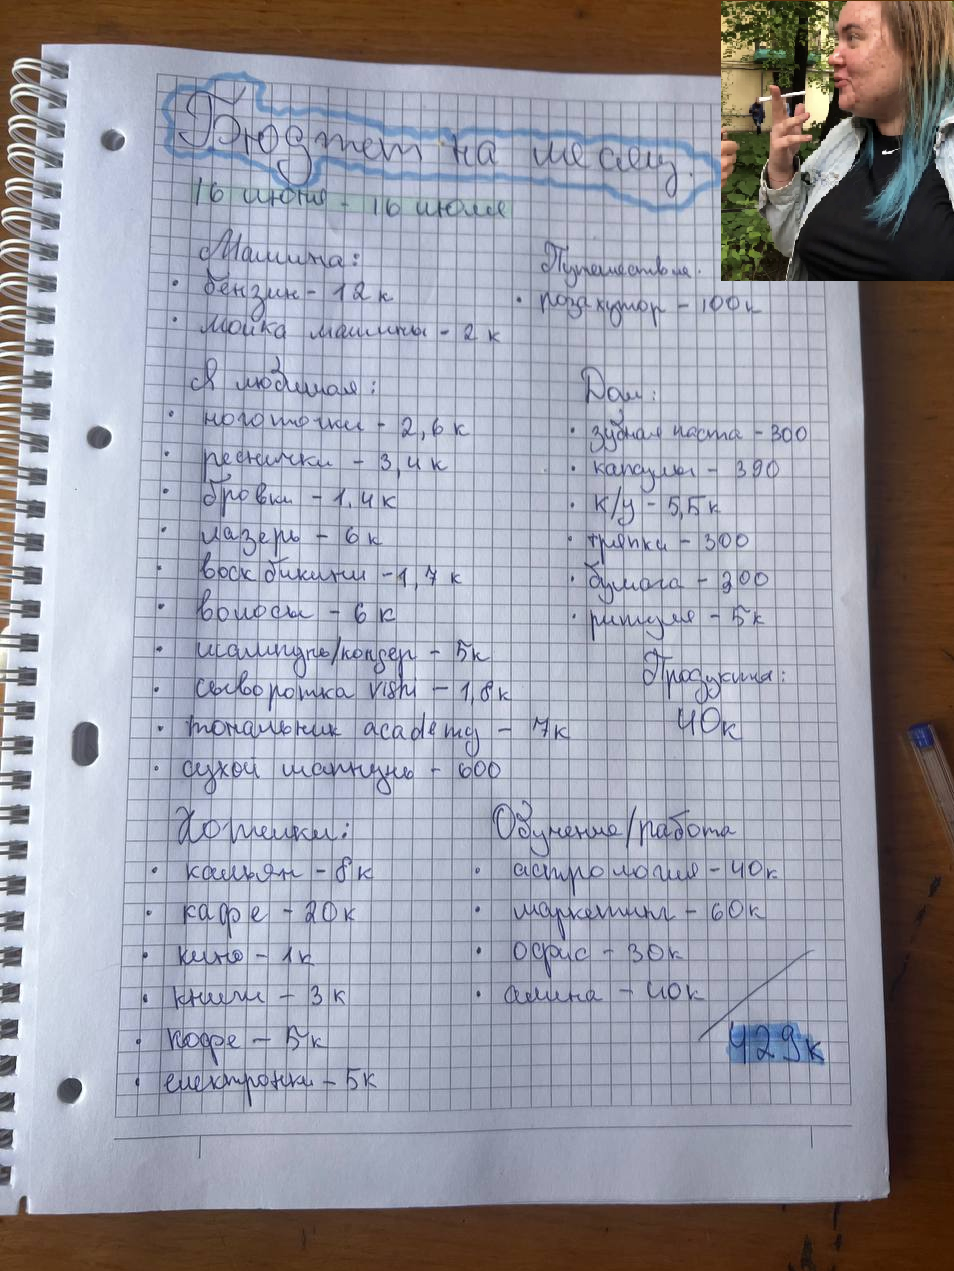 Бюджет на месяц.
16 июня - 16 июля
Машина:
• бензин - 12к
• мойка машины - 2к
Путешествия:
• роза хутор - 100к
Я любимая:
• ноготочки - 2,6к
• реснички - 3,4к
• бровки - 1,4к
• лазер - 6к
• воск бикини - 1,7к
• волосы - 6к
• шампунь/кондер - 5к
• сыворотка vishi - 1,8к
• тональник academy - 7к
• сухой шампунь - 600
Дом:
• зубная паста - 300
• капсулы - 390
• к/у - 5,5к
• тряпки - 300
• бумага - 300
• ритуля - 5к
Продукты:
40к
Хотелки:
• кальян - 8к
• кафе - 20к
• кино - 1к
• книги - 3к
• кофе - 5к
• електронки - 5к
Обучение/работа
• астрология - 40к
• маркетинг - 60к
• офис - 30к
• алина - 40к
429к